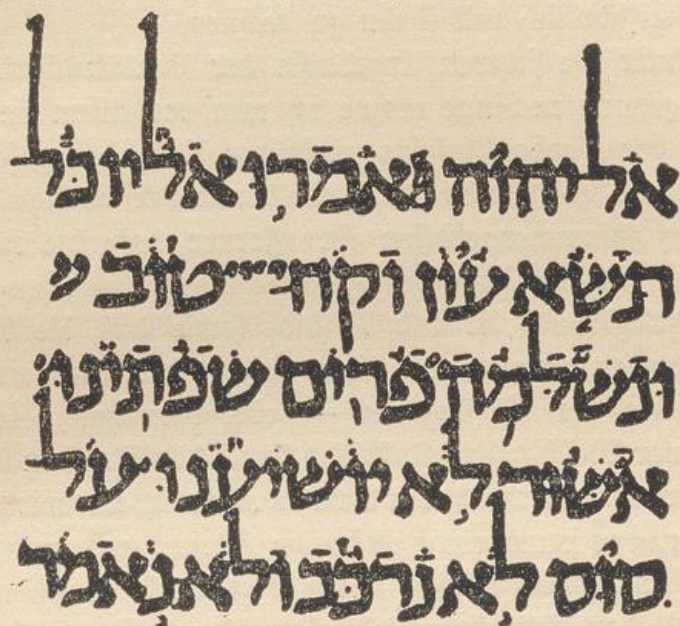 אל יהוה ואמרו אליו כל
תשא עון וקח טוב
ונשלמה פרים שפתינו
אשור לא יושיענו על
סוס לא נרכב ולא נאמר